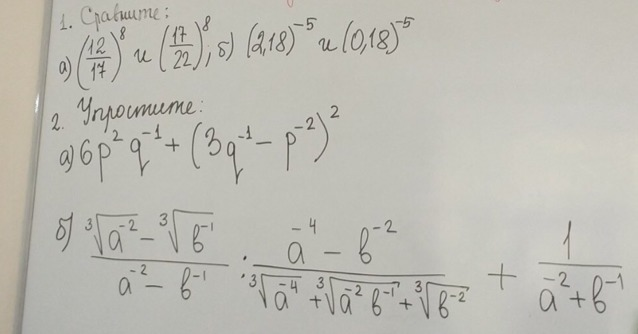 1. Сравните:
а) (12/17)^8 и (17/22)^8; б) (2,18)^-5 и (0,18)^-5
2. Упростите:
а) 6p^2 q^-1 + (3q^-1 - p^-2)^2
б) (∛(a^-2) - ∛(b^-1))/(a^-2 - b^-1) : (a^-4 - b^-2)/(∛(a^-4) + ∛(a^-2 b^-1) + ∛(b^-2)) + 1/(a^-2 + b^-1)